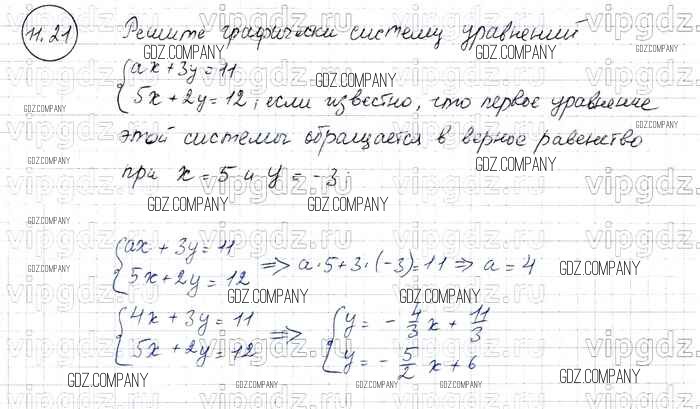 11.21 Решите графически систему уравнений
{ax + 3y = 11
{5x + 2y = 12, если известно, что первое уравнение
этой системы обращается в верное равенство
при x = 5 и y = -3.
{ax + 3y = 11
{5x + 2y = 12 => a·5+3·(-3)=11 => a = 4
{4x + 3y = 11
{5x + 2y = 12 => {y = -4/3 x + 11/3
{y = -5/2 x + 6
vipgdz.ru
GDZ.COMPANY